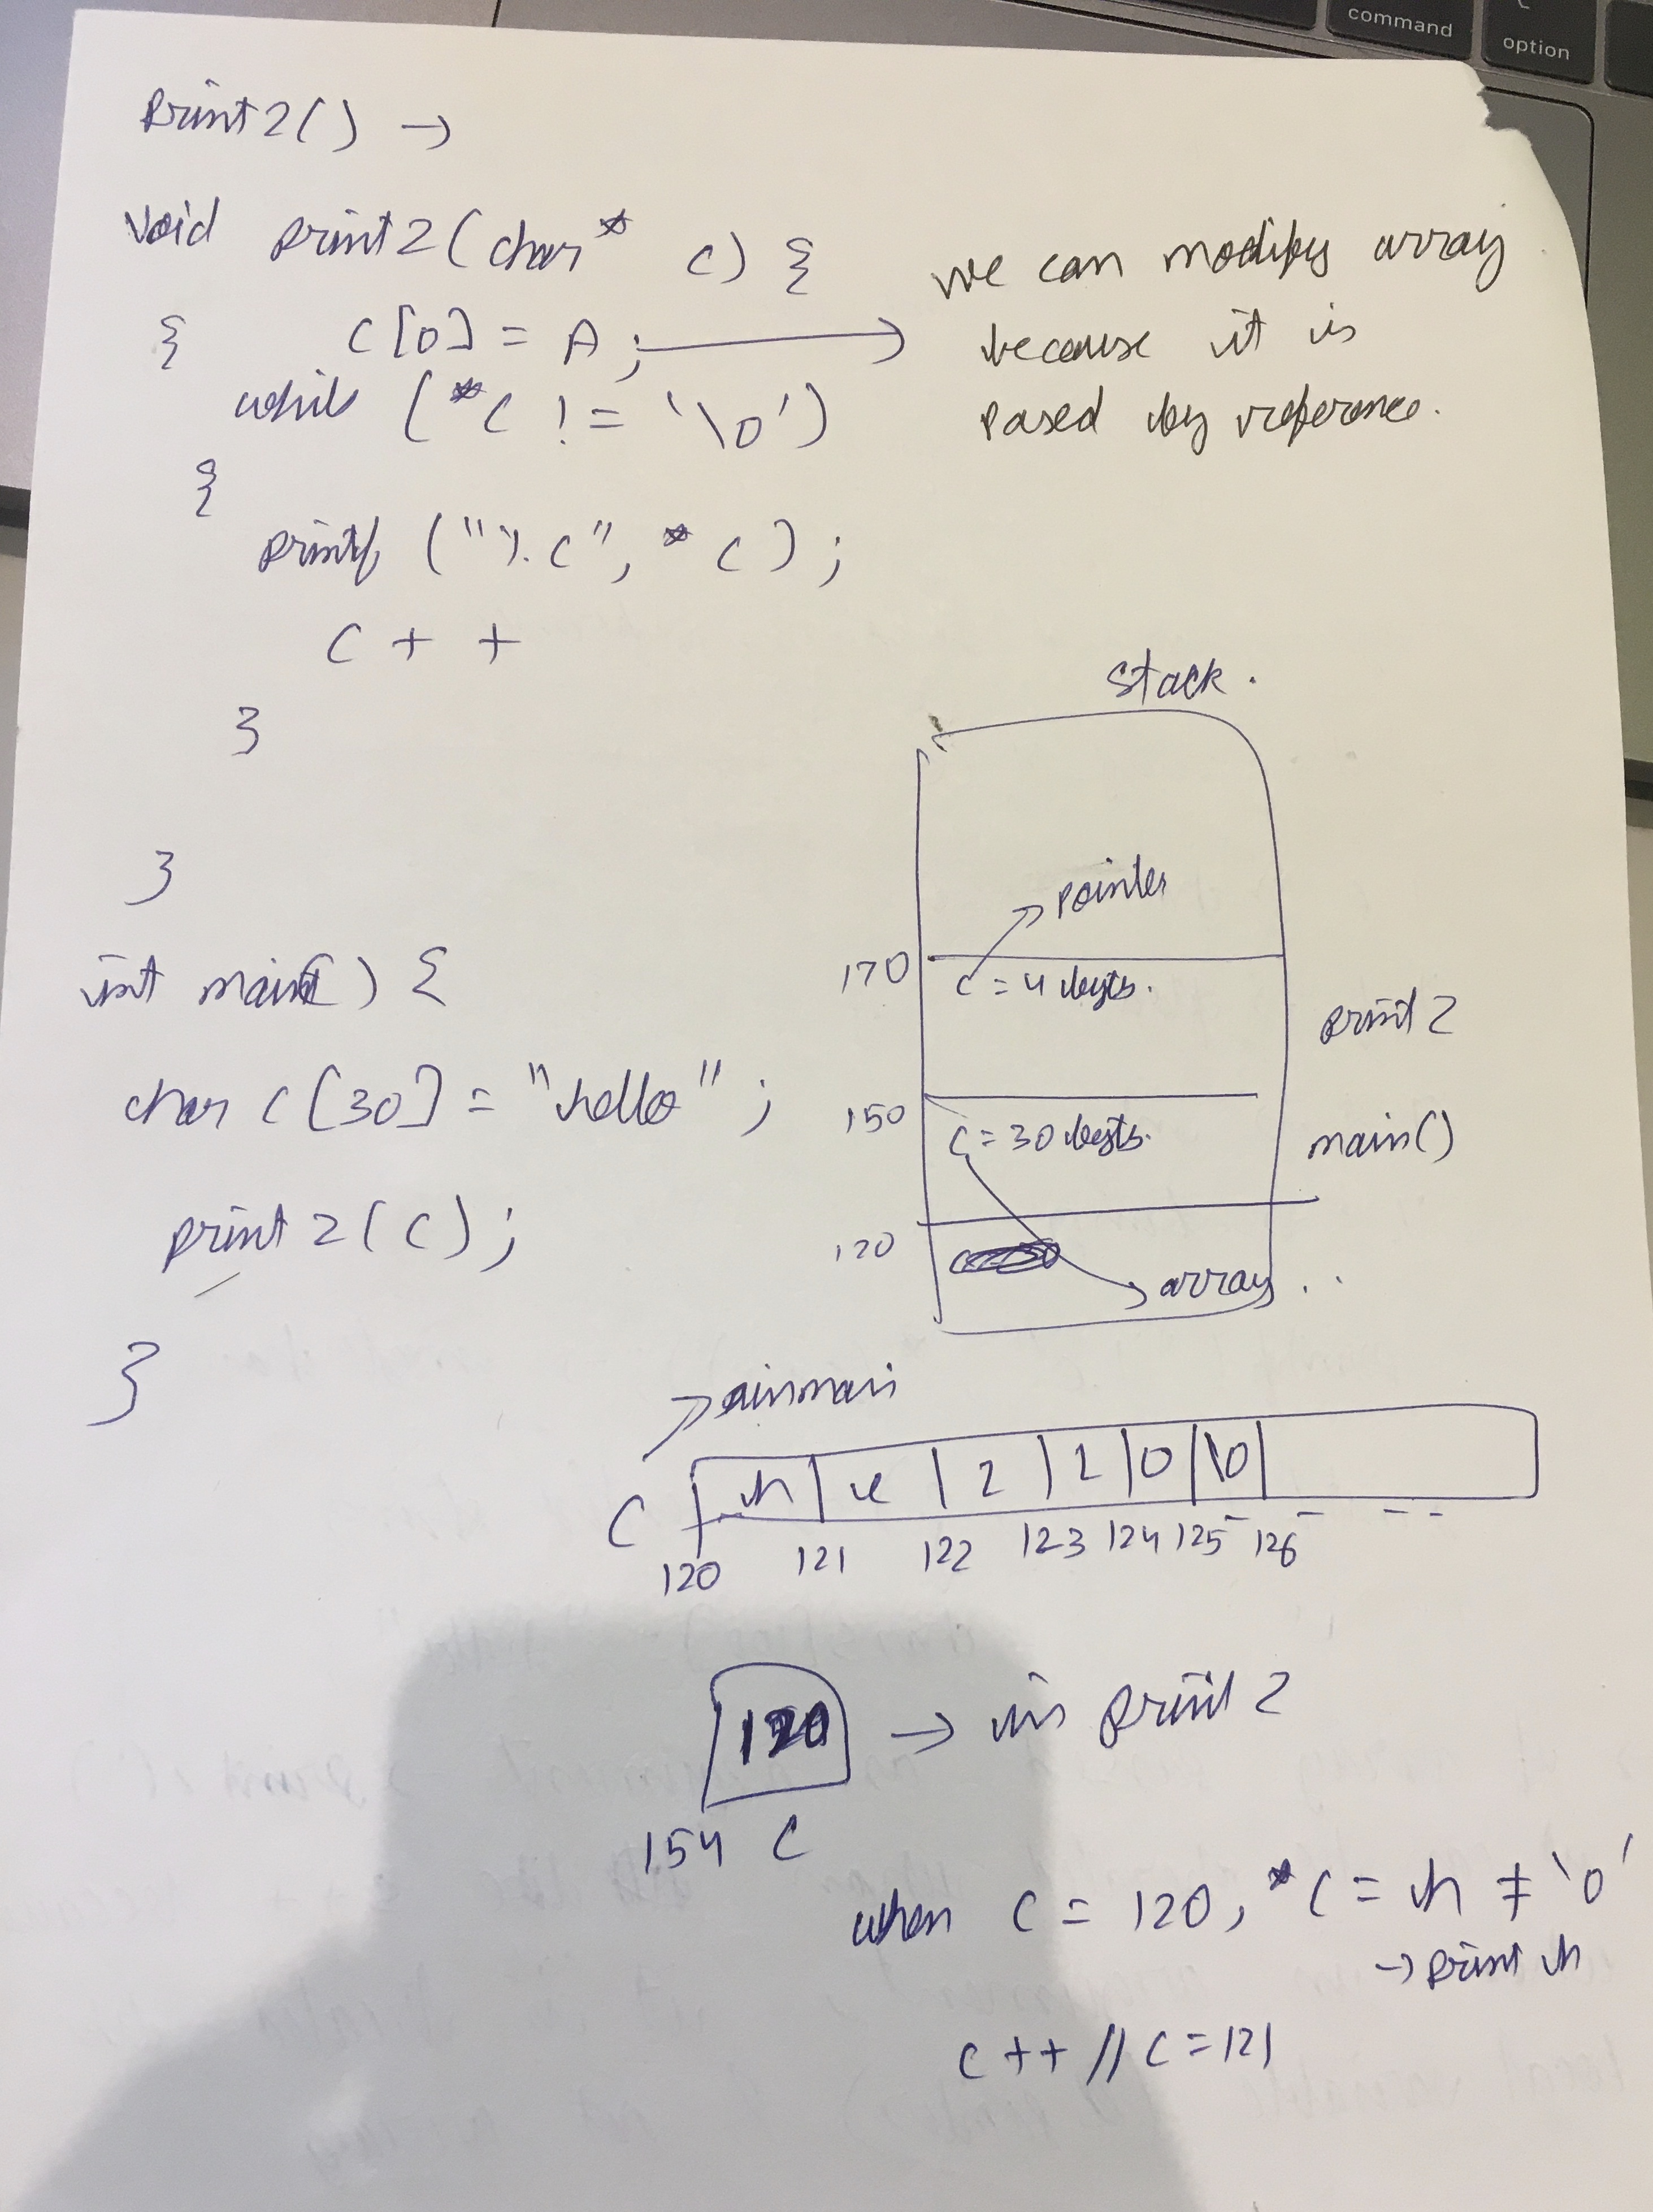 command
option
print2() →
void print2(char* c) {
{ c[0] = A;
we can modify array
because it is
pased by reference.
while (*c != '\0')
{
printf ("%c", *c);
c++
}
}
int main() {
char c[30] = "hello";
print2(c);
}
Stack.
pointer
170
c = 4 byts.
print2
150
c = 30 byts.
main()
120
array..
c
h e l l o \0
120 121 122 123 124 125 126 --
120 → in print2
154 c
when c = 120, *c = h ≠ '\0'
→ print h
c++ // c = 121